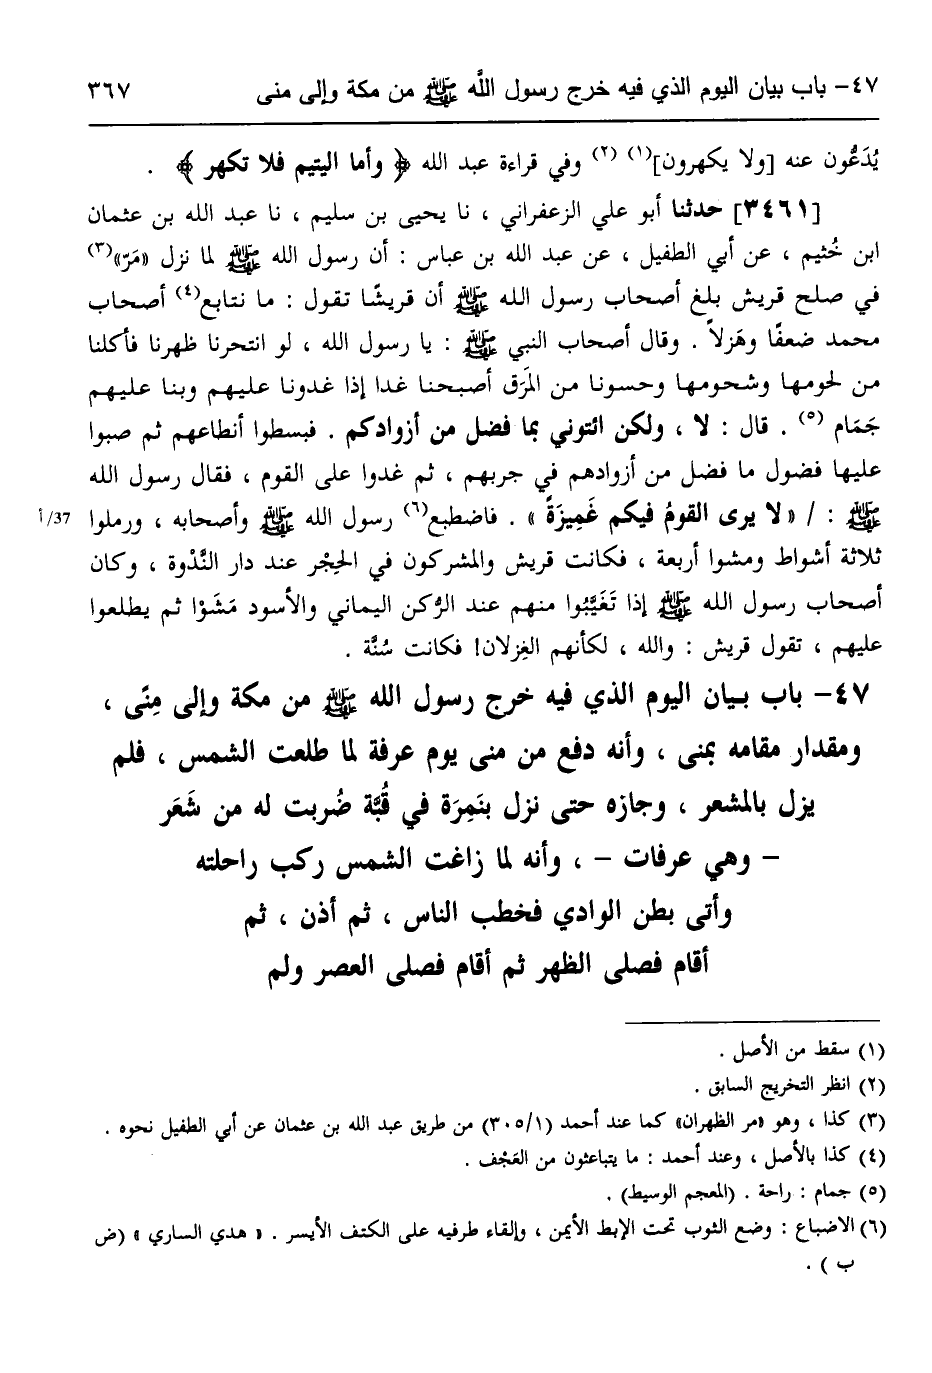 ٤٧- باب بيان اليوم الذي فيه خرج رسول اللَّه ﷺ من مكة وإلى منى ٣٦٧
يُدَعُّون عنه [ولا يكهرون](١) (٢) وفي قراءة عبد الله ﴿ وأما اليتيم فلا تكهر ﴾ .
[٣٤٦١] حدثنا أبو علي الزعفراني ، نا يحيى بن سليم ، نا عبد الله بن عثمان
ابن خُثيم ، عن أبي الطفيل ، عن عبد الله بن عباس : أن رسول الله ﷺ لما نزل «مَرّ»(٣)
في صلح قريش بلغ أصحاب رسول الله ﷺ أن قريشًا تقول : ما نتابع(٤) أصحاب
محمد ضعفًا وهَزلاً . وقال أصحاب النبي ﷺ : يا رسول الله ، لو انتحرنا ظهرنا فأكلنا
من لحومها وشحومها وحسونا من المَرَق أصبحنا غدا إذا غدونا عليهم وبنا عليهم
جَمَام (٥) . قال : لا ، ولكن ائتوني بما فضل من أزوادكم . فبسطوا أنطاعهم ثم صبوا
عليها فضول ما فضل من أزوادهم في جربهم ، ثم غدوا على القوم ، فقال رسول الله
ﷺ : / «لا يرى القومُ فيكم غَمِيزَةً » . فاضطبع(٦) رسول الله ﷺ وأصحابه ، ورملوا 37/أ
ثلاثة أشواط ومشوا أربعة ، فكانت قريش والمشركون في الحِجْر عند دار النَّدْوة ، وكان
أصحاب رسول الله ﷺ إذا تَغَيَّبُوا منهم عند الرُكن اليماني والأسود مَشَوْا ثم يطلعوا
عليهم ، تقول قريش : والله ، لكأنهم الغِزلان! فكانت سُنَّة .
٤٧- باب بيان اليوم الذي فيه خرج رسول الله ﷺ من مكة وإلى مِنًى ،
ومقدار مقامه بمنى ، وأنه دفع من منى يوم عرفة لما طلعت الشمس ، فلم
يزل بالمشعر ، وجازه حتى نزل بنَمِرَة في قُبَّة ضُربت له من شَعَر
- وهي عرفات - ، وأنه لما زاغت الشمس ركب راحلته
وأتى بطن الوادي فخطب الناس ، ثم أذن ، ثم
أقام فصلى الظهر ثم أقام فصلى العصر ولم
(١) سقط من الأصل .
(٢) انظر التخريج السابق .
(٣) كذا ، وهو «مر الظهران» كما عند أحمد (٣٠٥/١) من طريق عبد الله بن عثمان عن أبي الطفيل نحوه .
(٤) كذا بالأصل ، وعند أحمد : ما يتباعثون من العَجَف .
(٥) جمام : راحة . (المعجم الوسيط) .
(٦) الاضباع : وضع الثوب تحت الإبط الأيمن ، وإلقاء طرفيه على الكتف الأيسر . « هدي الساري » (ض
ب ) .